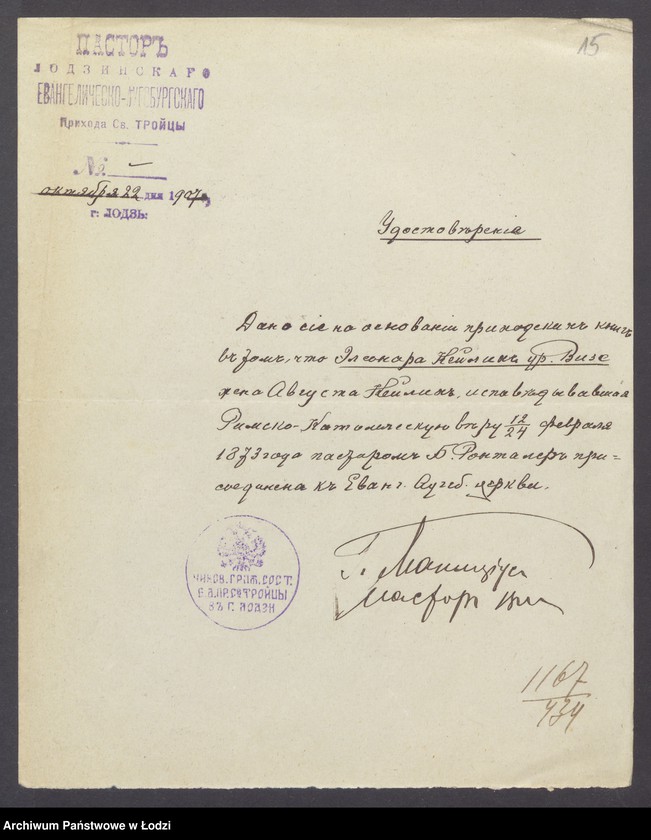 15
ПАСТОРЪ
ЛОДЗИНСКАГО
ЕВАНГЕЛИЧЕСКО-АУГСБУРГСКАГО
Прихода Св. ТРОЙЦЫ
№ —
октября 22 дня 1907 г.
г: ЛОДЗЬ:
Удостовѣреніе
Дано сіе на основаніи приходскихъ книгъ
въ томъ, что Элеонора Нейлихъ ур. Визе
жена Августа Нейлихъ, исповѣдывавшая
Римско-Католическую вѣру 12/24 февраля
1873 года пасторомъ Б. Ронталеръ при=
соединена къ Еванг. Аугсб. церкви.
Пасторъ
ЧИНОВ. ГРАЖ. СОСТ.
Е. А. ПР. СВ ТРОЙЦЫ
ВЪ Г. ЛОДЗИ
1167
434
Archiwum Państwowe w Łodzi